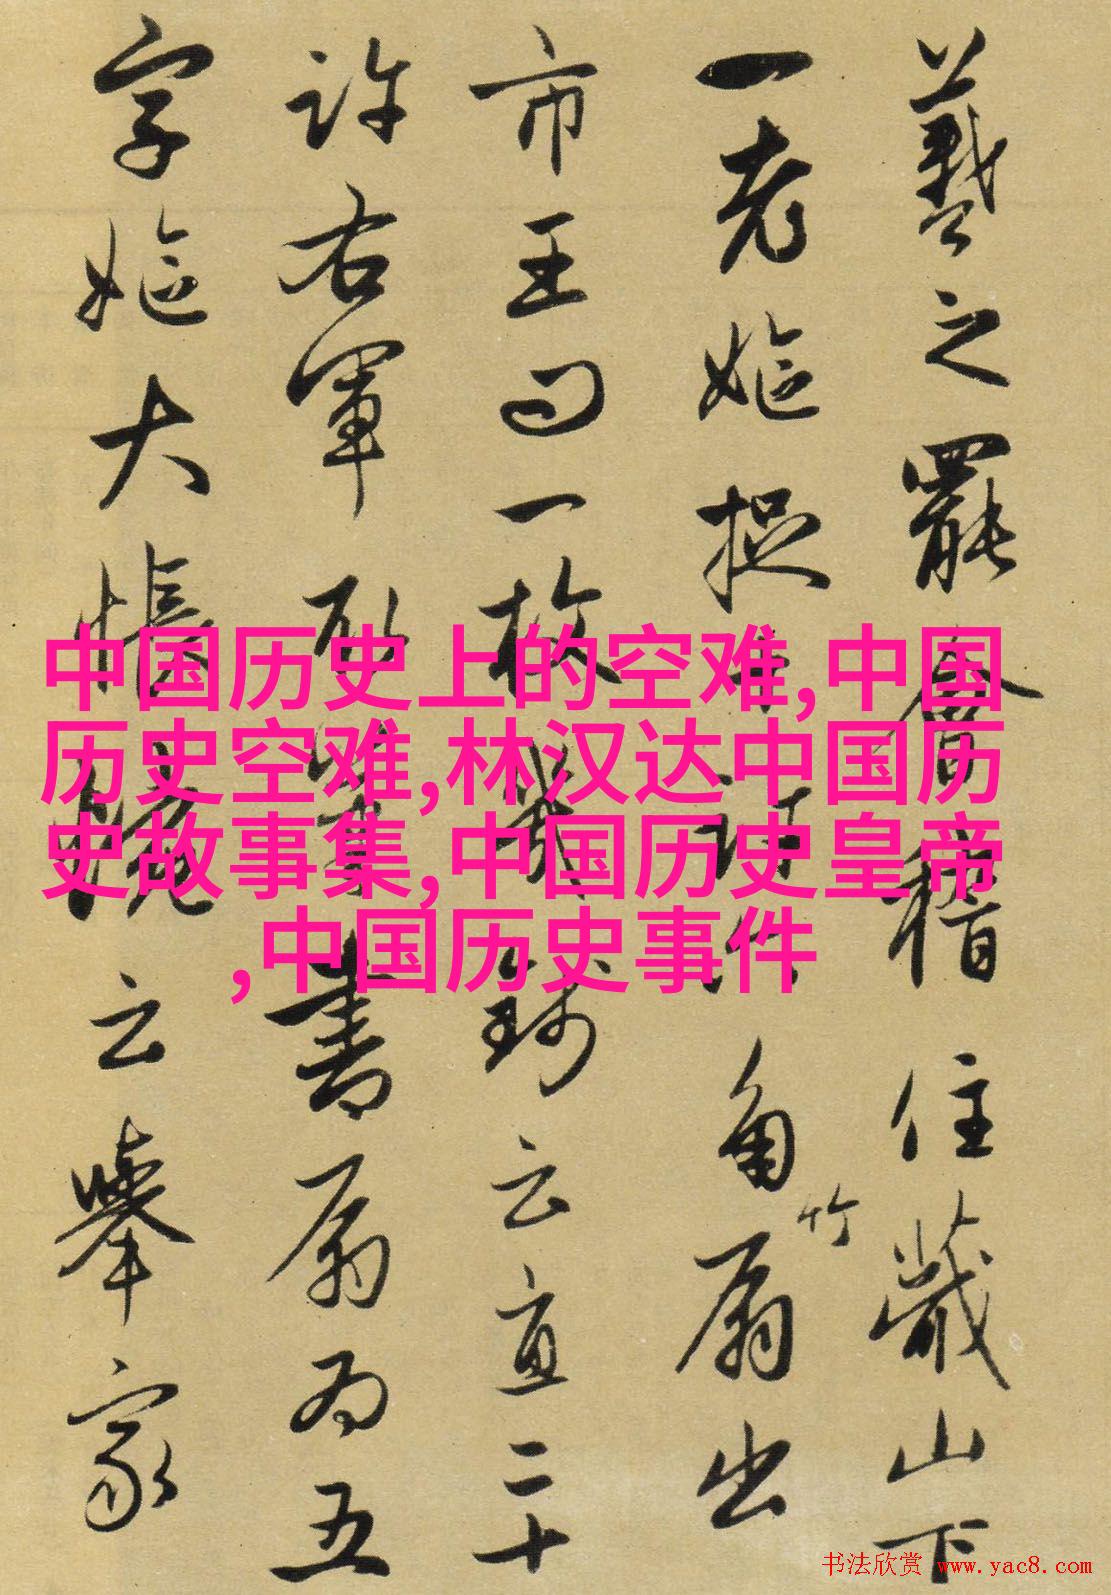 羲之罷會稽住蕺山下
一老嫗捉
角扇出
竹
市王曰一枚幾錢云直二十
許右軍取筆書扇為五
字嫗大悵惋云舉家
中国历史上的空难,中国
历史空难,林汉达中国历
史故事集,中国历史皇帝
,中国历史事件
书法欣赏 www.yac8.com